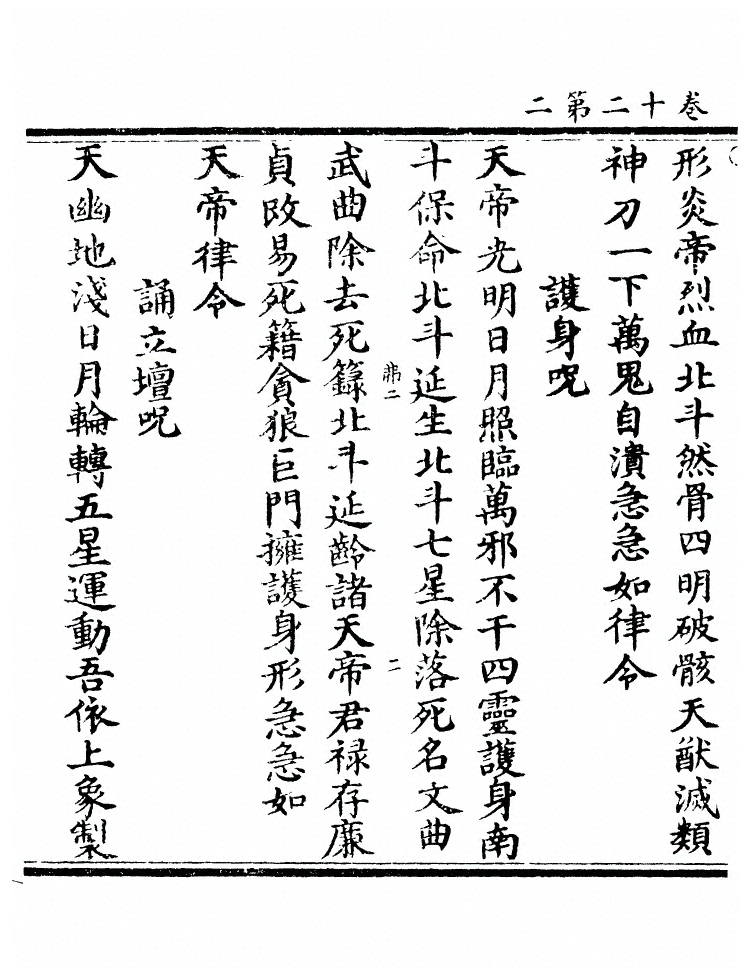 卷十二第二
形炎帝烈血北斗然骨四明破骸天猷滅類
神刀一下萬鬼自潰急急如律令
護身呪
天帝光明日月照臨萬邪不干四靈護身南
斗保命北斗延生北斗七星除落死名文曲
弗二
二
武曲除去死籙北斗延齡諸天帝君禄存廉
貞改易死籍貪狼巨門擁護身形急急如
天帝律令
誦立壇呪
天幽地淺日月輪轉五星運動吾依上象製